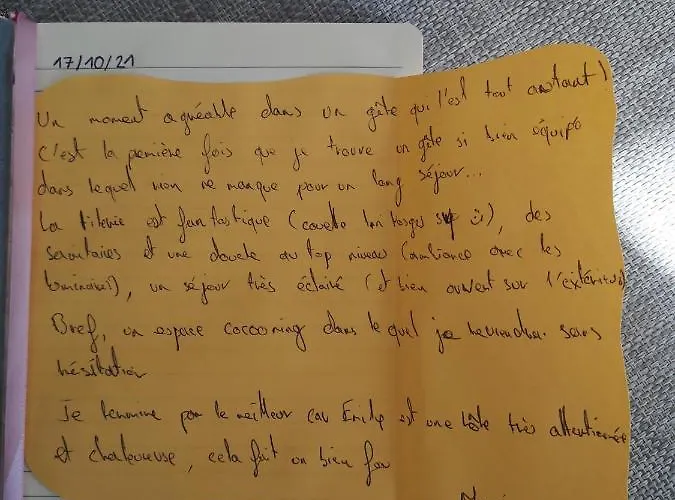 17/10/21
Un moment agréable dans un gîte qui l'est tout autant !
C'est la première fois que je trouve un gîte si bien équipé
dans lequel rien ne manque pour un long séjour...
La literie est fantastique (couette :)), des
sanitaires et une douche au top niveau (ambiance avec les
luminaires), un séjour très éclairé (et bien ouvert sur l'extérieur)
Bref, un espace cocooning dans lequel je reviendrai sans
hésitation
Je termine par le meilleur car est une hôte très attentionnée
et chaleureuse, cela fait un bien fou